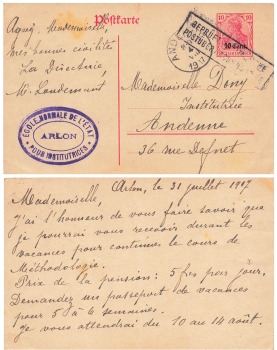 Postkarte
Agréez, Mademoiselle,
mes bonnes civilités
La Directrice,
M. Laudemont
10
10
10 Cent.
GEPRÜFT
POSTÜBER
AND
ÉCOLE NORMALE DE L'ÉTAT
ARLON
POUR INSTITUTRICES
Mademoiselle Dony
Institutrice
Andenne
36 rue
Arlon, le 31 juillet 1917
Mademoiselle,
J'ai l'honneur de vous faire savoir que
je pourrai vous recevoir durant les
vacances pour continuer le cours de
Méthodologie.
Prix de la pension: 5 frs par jour.
Demandez un passeport de vacances
pour 5 à 6 semaines.
Je vous attendrai du 10 au 14 août.